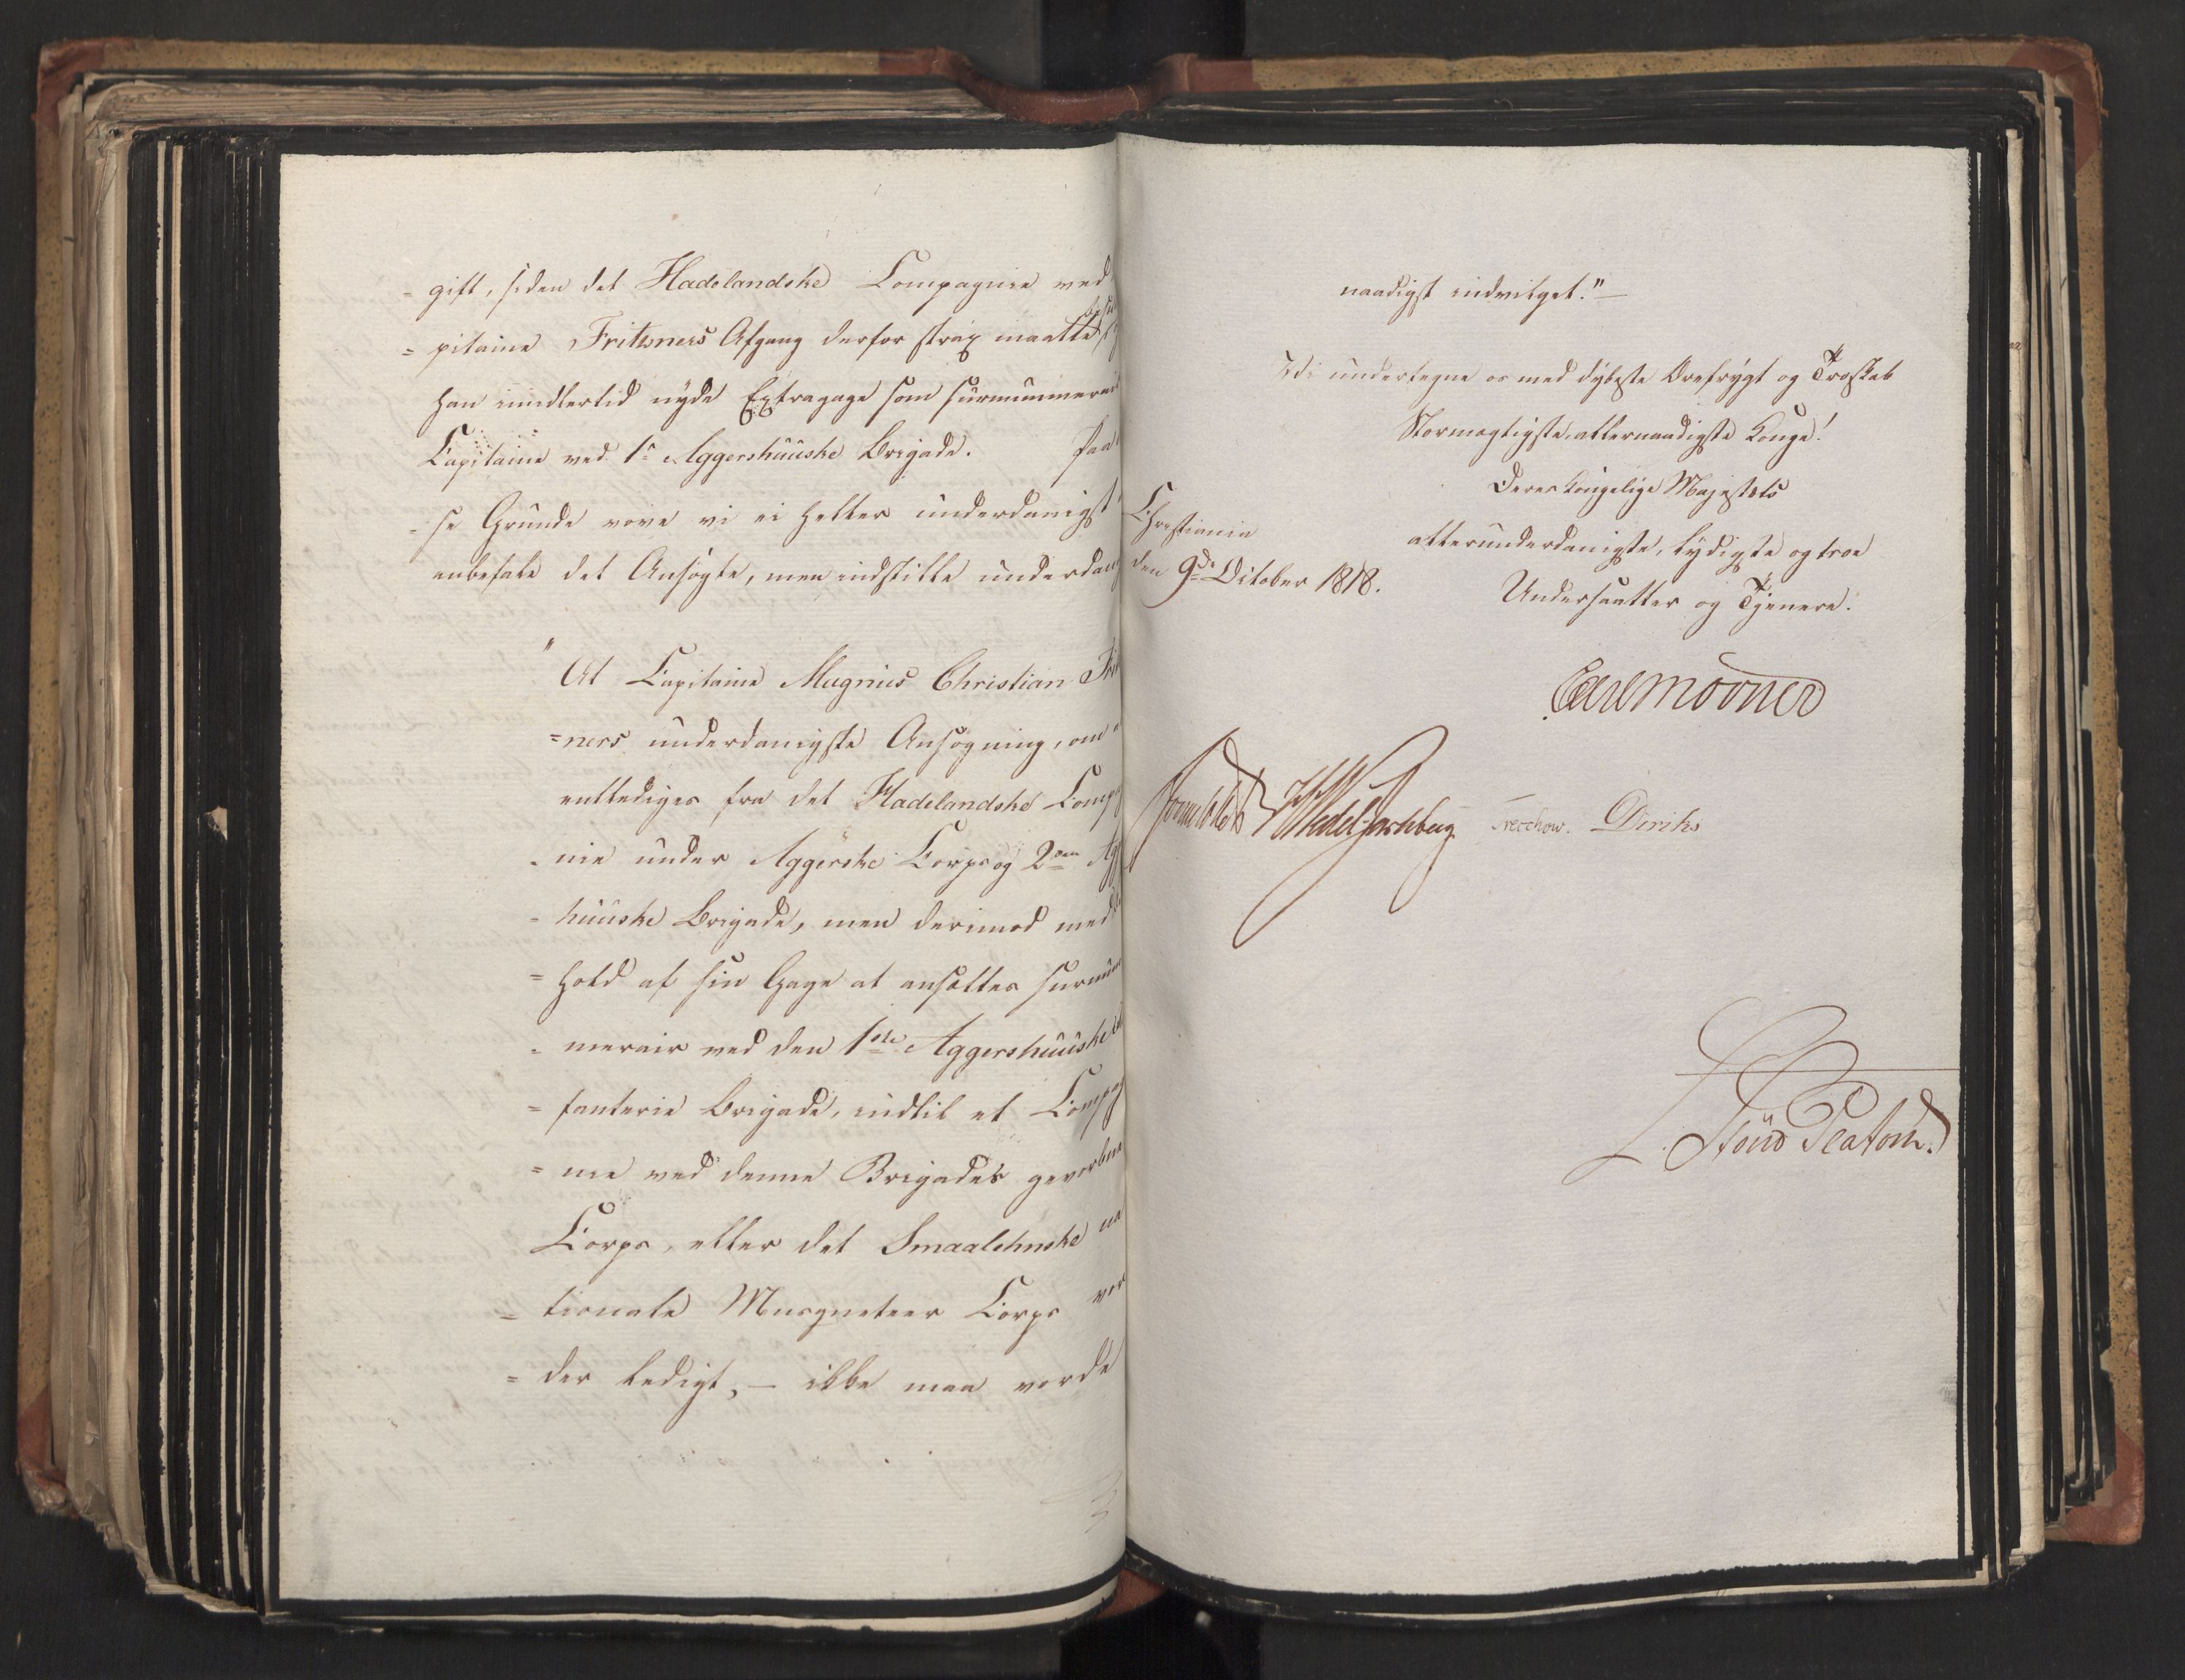 = gift, siden det Hadelandske Compagnie ved
= pitaine Frithsners Afgang derfor strax maatte
han imidlertid nyde Extragage som surnumerair
Capitaine ved 1ste Aggershuuske Brigade. Paa
= se Grunde vove vi ei heller underdanigst
anbefale det Ansøgte, men indstille underdanigst
"At Capitaine Magnus Christian
= ners underdanigste Ansøgning, om
entlediges fra det Hadelandske Compag
= nie under Aggerske Corps og 2den Agg
= huuske Brigade, men derimod med
= hold af sin Gage at ansættes surnu
= merair ved den 1ste Aggershuuske
= fanterie Brigade, indtil et Compag
= nie ved denne Brigades gevorbne
Corps, eller det Smaalehnske na
= tionale Musqueteer Corps vor
= der ledigt, — ikke maa vorde
naadigst indvilget." —
Vi undertegne os med dybeste Ærefrygt og Troskab
Stormægtigste, allernaadigste Konge!
Deres Kongelige Majestæts
allerunderdanigste, lydigste og troe
Undersaatter og Tjenere.
Christiania
den 9de October 1818.
Carl Mörner
Sommerhielm Wedel Jarlsberg Treschow. Diriks